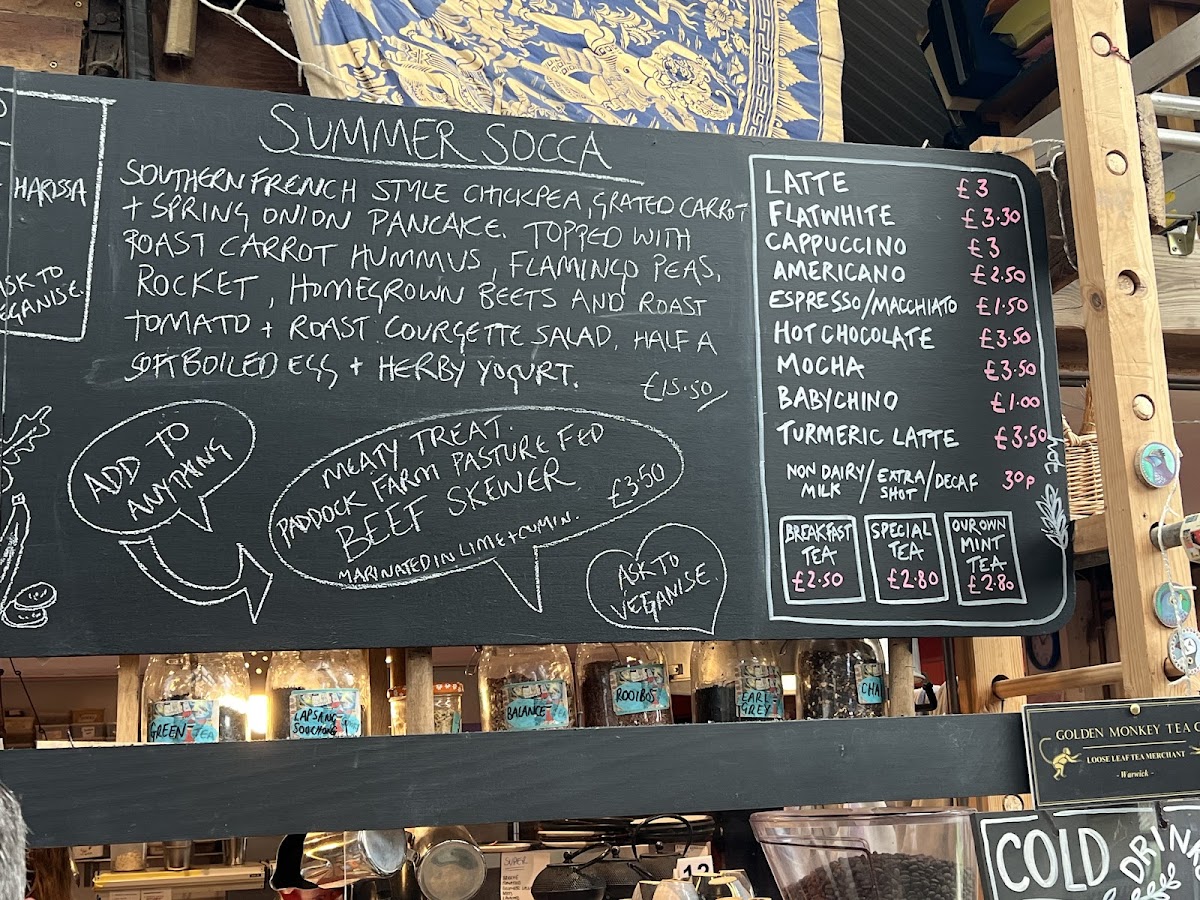 HARISSA
ASK TO
SUMMER SOCCA
SOUTHERN FRENCH STYLE CHICKPEA, GRATED CARROT
+ SPRING ONION PANCAKE. TOPPED WITH
ROAST CARROT HUMMUS, FLAMINGO PEAS,
ROCKET, HOMEGROWN BEETS AND ROAST
TOMATO + ROAST COURGETTE SALAD, HALF A
SOFT BOILED EGG + HERBY YOGURT.
£15.50
ADD TO
ANYTHING
MEATY TREAT.
PADDOCK FARM PASTURE FED
BEEF SKEWER £3.50
MARINATED IN LIME + CUMIN.
ASK TO
VEGANISE.
LATTE £3
FLATWHITE £3.30
CAPPUCCINO £3
AMERICANO £2.50
ESPRESSO/MACCHIATO £1.50
HOT CHOCOLATE £3.50
MOCHA £3.50
BABYCHINO £1.00
TURMERIC LATTE £3.50
NON DAIRY MILK/EXTRA SHOT/DECAF 30p
BREAKFAST
TEA
£2.50
SPECIAL
TEA
£2.80
OUR OWN
MINT
TEA
£2.80
GREEN TEA
LAPSANG
SOUCHONG
BALANCE
ROOIBOS
EARL
GREY
CHA
GOLDEN MONKEY TEA
LOOSE LEAF TEA MERCHANT
- Warwick -
COLD
DRINK
SUPER
12